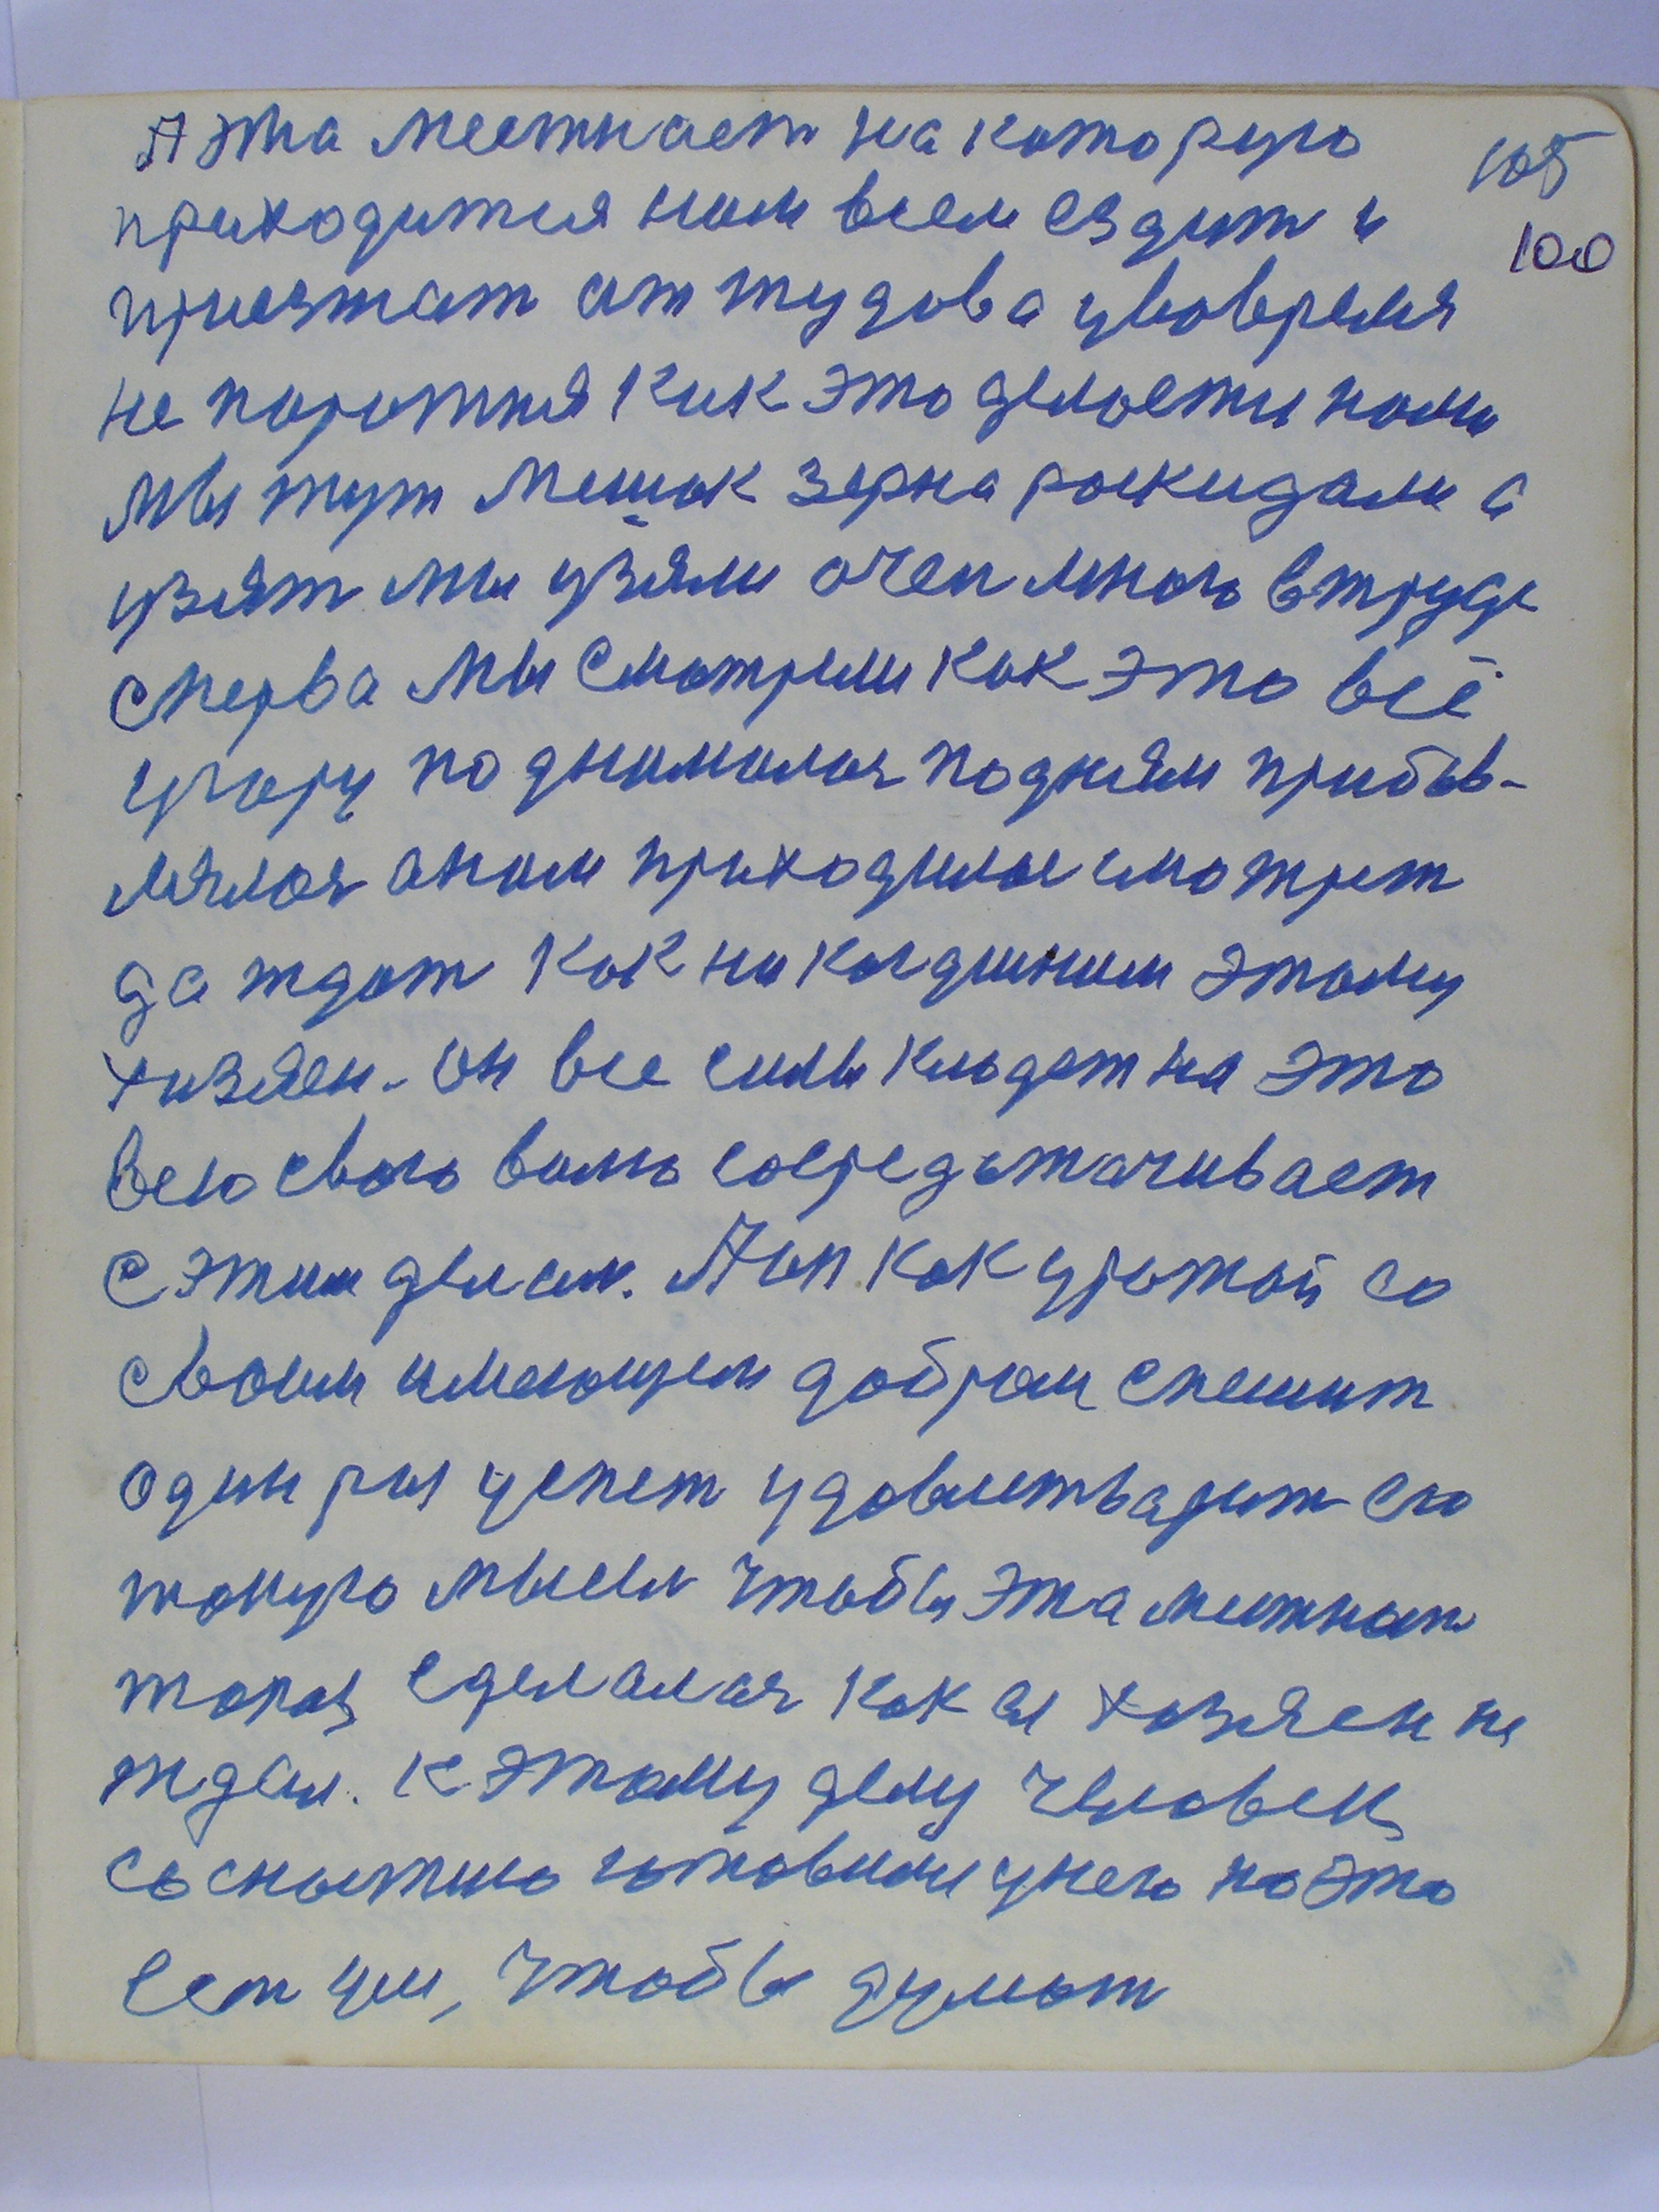 А эта местнаст на которую
105
приходится нам всем ездит и
100
приезжат от тудова увовремя
не порожня как это делаетца нами
мы тут мешок зерна роскидали а
узят мы узяли очен много в труде
сперва мы смотрели как это всё
угору поднималос подням прибав-
лялос а нам приходилос смотрет
да ждат как никогда нам этому
хазяен. он все силы кладет на это
всю свою волю сосредотачивает
с этим делам. А он как урожай со
своим имеющем добром спешит
один раз успет удовлетварит ею
такую мысль чтобы эта местнаст
такая сделалас как ея хазяен не
ждал. К этому делу человек
со сностию готовили у него на это
ест ум, чтобы думат